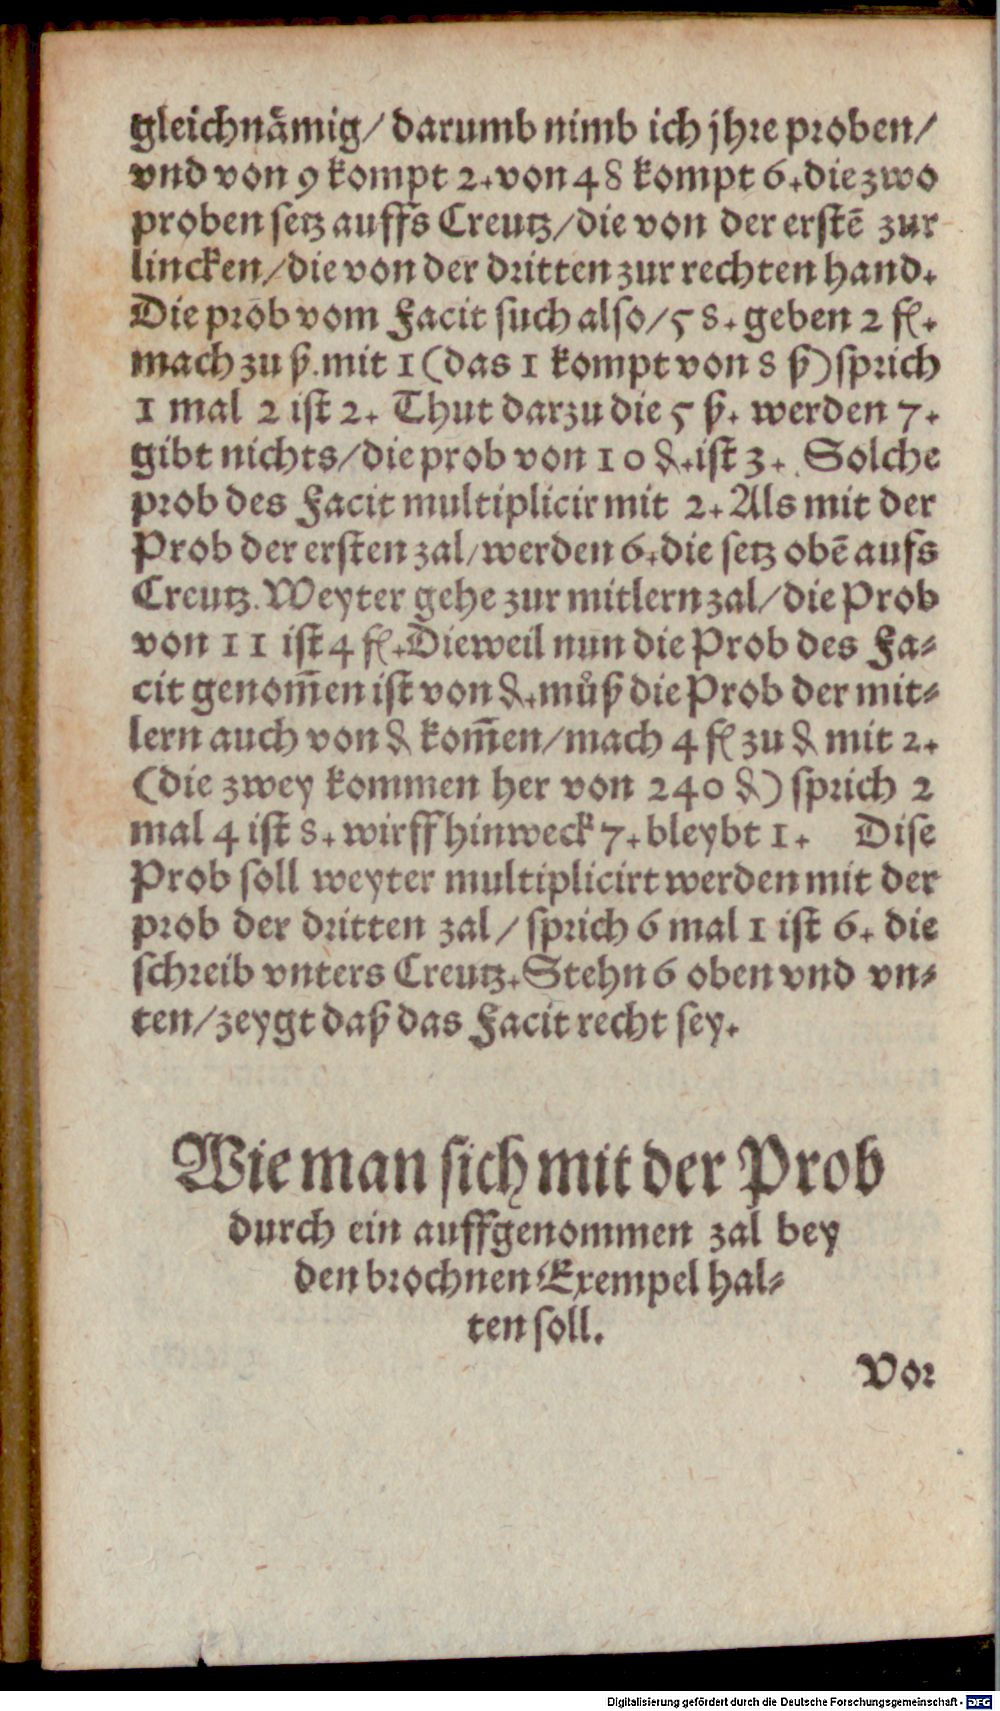 gleichnåmig/ darumb nimb ich jhre proben/
vnd von 9 kompt 2. von 48 kompt 6. die zwo
proben setz auffs Creutz/ die von der erstẽ zur
lincken/ die von der dritten zur rechten hand.
Die prob vom Facit such also/ 58. geben 2 fl.
mach zu ß. mit 1 (das 1 kompt von 8 ß) sprich
1 mal 2 ist 2. Thut darzu die 5 ß. werden 7.
gibt nichts/ die prob von 10 ₰. ist 3. Solche
prob des Facit multiplicir mit 2. Als mit der
Prob der ersten zal/ werden 6. die setz obẽ aufs
Creutz. Weyter gehe zur mitlern zal/ die Prob
von 11 ist 4 fl. Dieweil nun die Prob des Fa-
cit genom̃en ist von ₰. můß die Prob der mit-
lern auch von ₰ kom̃en/ mach 4 fl zu ₰ mit 2.
(die zwey kommen her von 240 ₰) sprich 2
mal 4 ist 8. wirff hinweck 7. bleybt 1. Dise
Prob soll weyter multiplicirt werden mit der
prob der dritten zal/ sprich 6 mal 1 ist 6. die
schreib vnters Creutz. Stehn 6 oben vnd vn-
ten/ zeygt daß das Facit recht sey.
Wie man sich mit der Prob
durch ein auffgenommen zal bey
den brochnen Exempel hal-
ten soll.
Vor
Digitalisierung gefördert durch die Deutsche Forschungsgemeinschaft - DFG